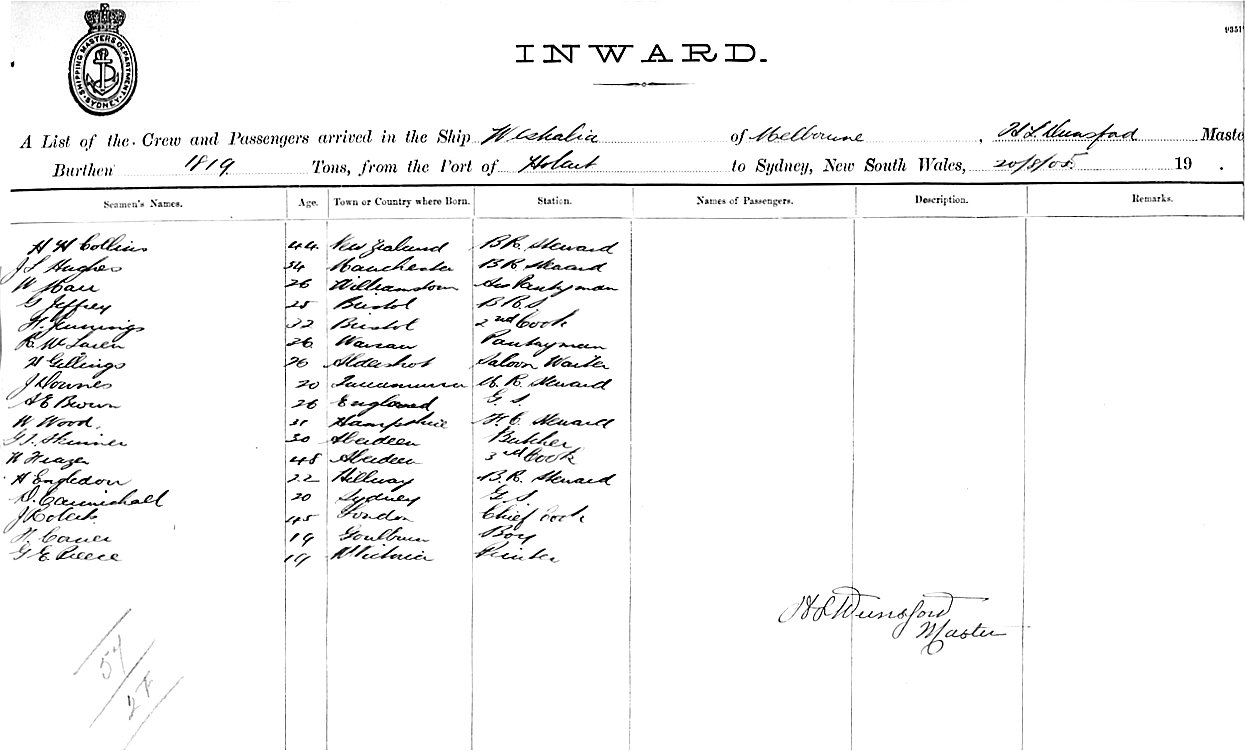 SHIPPING MASTERS DEPARTMENT SYDNEY
INWARD.
A List of the Crew and Passengers arrived in the Ship Westralia of Melbourne, H L Dunsford Maste
Burthen 1819 Tons, from the Port of Hobart to Sydney, New South Wales, 20/8/05. 19 .
Seamen's Names. Age. Town or Country where Born. Station. Names of Passengers. Description. Remarks.
H H Collins 44 New Zealand B R Steward
J L Hughes 34 Manchester B R Steward
W Marr 26 Williamstown Ass Pantryman
G Jeffrey 25 Bristol B. R. S.
H. Jennings 32 Bristol 2nd Cook
R McLaren 26 Warsaw Pantryman
H Gillings 26 Aldershot Saloon Waiter
J Downes 20 Steward
A E Brown 26 England G. S.
W Wood. 31 Hampshire F. C. Steward
G. S. Skinner 30 Aberdeen Butcher
W Frazer 48 Aberdeen 3rd Cook
H Engledon 22 Hillway B. R. Steward
D. Carmichall 20 Sydney G. S.
J Roberts 45 London Chief Cook
19 Goulburn Boy
G. E. Reece 19 N Victoria Printer
H L Dunsford
Master